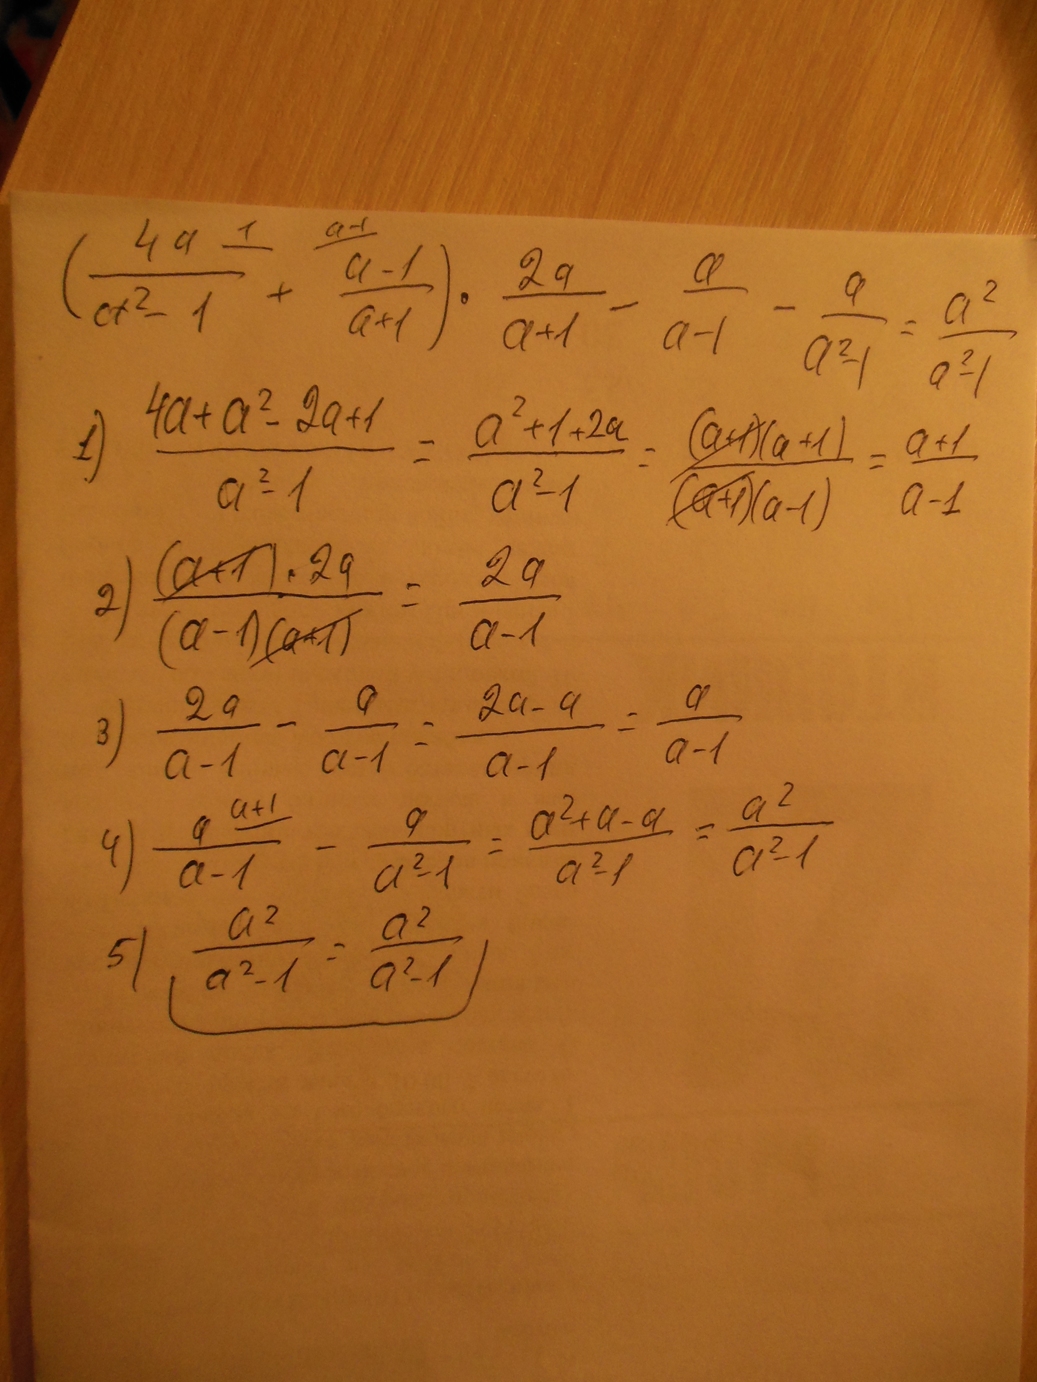 (4a 1/a²-1 + a-1 a-1/a+1) · 2a/a+1 - a/a-1 - a/a²-1 = a²/a²-1
1) 4a+a²-2a+1/a²-1 = a²+1+2a/a²-1 = (a+1)(a+1)/(a+1)(a-1) = a+1/a-1
2) (a+1)·2a/(a-1)(a+1) = 2a/a-1
3) 2a/a-1 - a/a-1 = 2a-a/a-1 = a/a-1
4) a a+1/a-1 - a/a²-1 = a²+a-a/a²-1 = a²/a²-1
5) a²/a²-1 = a²/a²-1